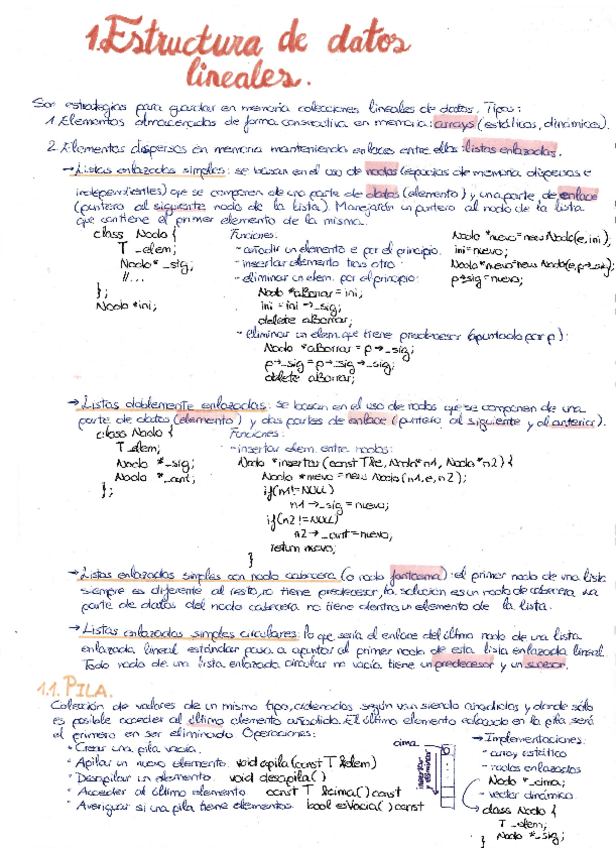 1. Estructura de datos
lineales.
Son estrategias para guardar en memoria colecciones lineales de datos. Tipos:
1. Elementos almacenados de forma consecutiva en memoria: arrays (estáticos, dinámicos).
2. Elementos dispersos en memoria manteniendo enlaces entre ellos: listas enlazadas.
→ Listas enlazadas simples: se basan en el uso de nodos (espacios de memoria dispersos e
independientes) que se componen de una parte de datos (elemento) y una parte de enlace
(puntero al siguiente nodo de la lista). Manejarán un puntero al nodo de la lista
que contiene el primer elemento de la misma.
class Nodo {
T _elem;
Nodo* _sig;
//...
};
Nodo *ini;
Funciones:
- añadir un elemento e por el principio. Nodo *nuevo=new Nodo(e, ini), ini=nuevo;
- insertar elemento tras otro: Nodo *nuevo=new Nodo(e,p→_sig); p→sig=nuevo;
- eliminar un elem. por el principio:
Nodo *aBorrar = ini;
ini = ini →_sig;
delete aBorrar;
- eliminar un elem. que tiene predecesor (apuntado por p):
Nodo *aBorrar = p→_sig;
p→_sig = p→_sig→_sig;
delete aBorrar;
→ Listas doblemente enlazadas: se basan en el uso de nodos que se componen de una
parte de datos (elemento) y dos partes de enlace (puntero al siguiente y al anterior).
class Nodo {
T _elem;
Nodo * _sig;
Nodo * _ant;
};
Funciones:
- insertar elem. entre nodos:
Nodo *insertar(const T&e, Nodo*n1, Nodo*n2) {
Nodo *nuevo = new Nodo(n1,e,n2);
if(n1!=NULL)
n1 →_sig = nuevo;
if(n2 !=NULL)
n2→_ant=nuevo,
return nuevo;
}
→ Listas enlazadas simples con nodo cabecera (o nodo fantasma): el primer nodo de una lista
siempre es diferente al resto, no tiene predecesor, la solución es un nodo de cabecera. La
parte de datos del nodo cabecera no tiene dentro un elemento de la lista.
→ Listas enlazadas simples circulares: lo que sería el enlace del último nodo de una lista
enlazada lineal estándar pasa a apuntar al primer nodo de esta lista enlazada lineal.
Todo nodo de un lista enlazada circular no vacía tiene un predecesor y un sucesor.
1.1. PILA.
Colección de valores de un mismo tipo, ordenados según van siendo añadidos y donde sólo
es posible acceder al último elemento añadido. El último elemento colocado en la pila será
el primero en ser eliminado. Operaciones:
• Crear una pila vacía.
• Apilar un nuevo elemento. void apila(const T &elem)
• Desapilar un elemento. void desapila()
• Acceder al último elemento const T &cima() const
• Averiguar si una pila tiene elementos. bool esVacia() const
cima
insertar y eliminar
→ Implementaciones:
- array estático
- nodos enlazados
Nodo *_cima;
- vector dinámico.
class Nodo {
T _elem;
Nodo *_sig;
}